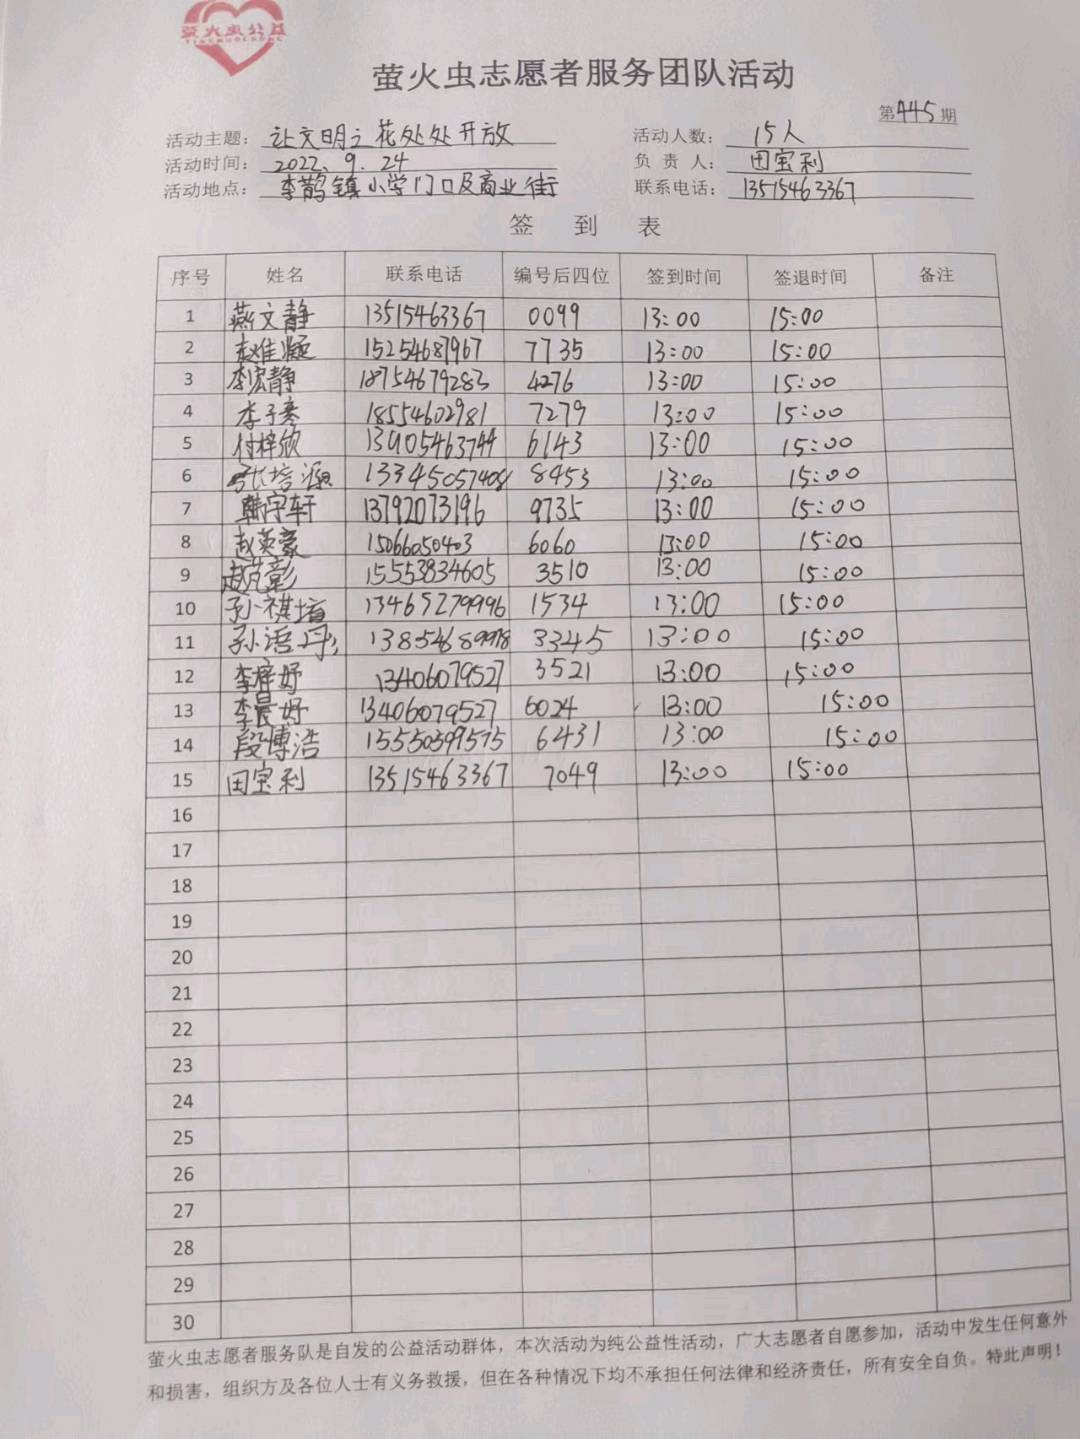 萤火虫公益
萤火虫志愿者服务团队活动
第445期
活动主题: 让文明之花处处开放 活动人数: 15人
活动时间: 2022.9.24 负责人: 田宝利
活动地点: 李鹊镇小学门口及商业街 联系电话: 13515463367
签到表
序号 姓名 联系电话 编号后四位 签到时间 签退时间 备注
1 燕文静 13515463367 0099 13:00 15:00
2 赵佳凝 15254687967 7735 13:00 15:00
3 李宏静 18754679283 4276 13:00 15:00
4 李子寒 18554602981 7279 13:00 15:00
5 付梓欣 13905463744 6143 13:00 15:00
6 张培源 13345057408 8453 13:00 15:00
7 韩宇轩 13792073196 9735 13:00 15:00
8 赵英豪 15066050403 6060 13:00 15:00
9 赵芃彰 15553834605 3510 13:00 15:00
10 孙祺堉 13465279996 1534 13:00 15:00
11 孙语彤 13854689918 3345 13:00 15:00
12 李梓妤 13406079527 3521 13:00 15:00
13 李晨妤 13406079527 6024 13:00 15:00
14 段博浩 15550399575 6431 13:00 15:00
15 田宝利 13515463367 7049 13:00 15:00
16
17
18
19
20
21
22
23
24
25
26
27
28
29
30
萤火虫志愿者服务队是自发的公益活动群体，本次活动为纯公益性活动，广大志愿者自愿参加，活动中发生任何意外
和损害，组织方及各位人士有义务救援，但在各种情况下均不承担任何法律和经济责任，所有安全自负。特此声明！